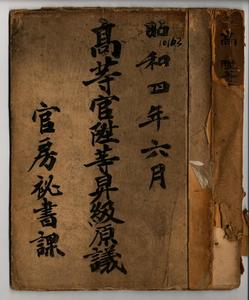 昭和四年六月
10163
高等官陞等昇級原議
官房祕書課